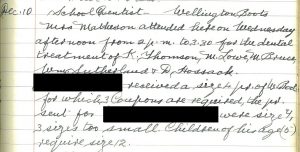 Dec. 10 School Dentist Wellington Boots
Miss Matheson attended here on Wednesday
afternoon from 2 p.m. to 3.30 for the dental
treatment of K. Thomson, M. Lowe, M. Bruce
Wm Sutherland & D. Fossack.
received a size 2 pr. of W. Boots
for which 3 Coupons are required, the pr.
sent for were size 9,
3 sizes too small. Children of his age (5)
require size 12.